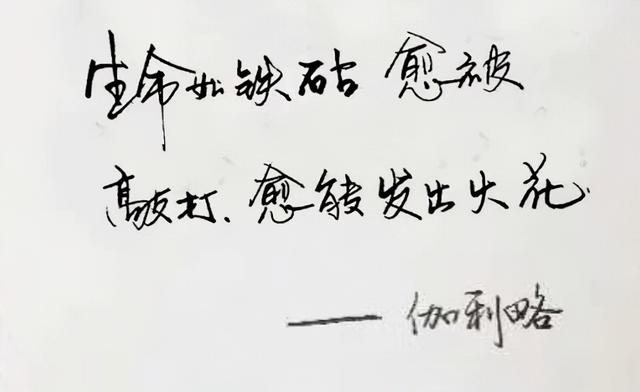 生命如铁砧 愈被
敲打、愈能发出火花
—— 伽利略